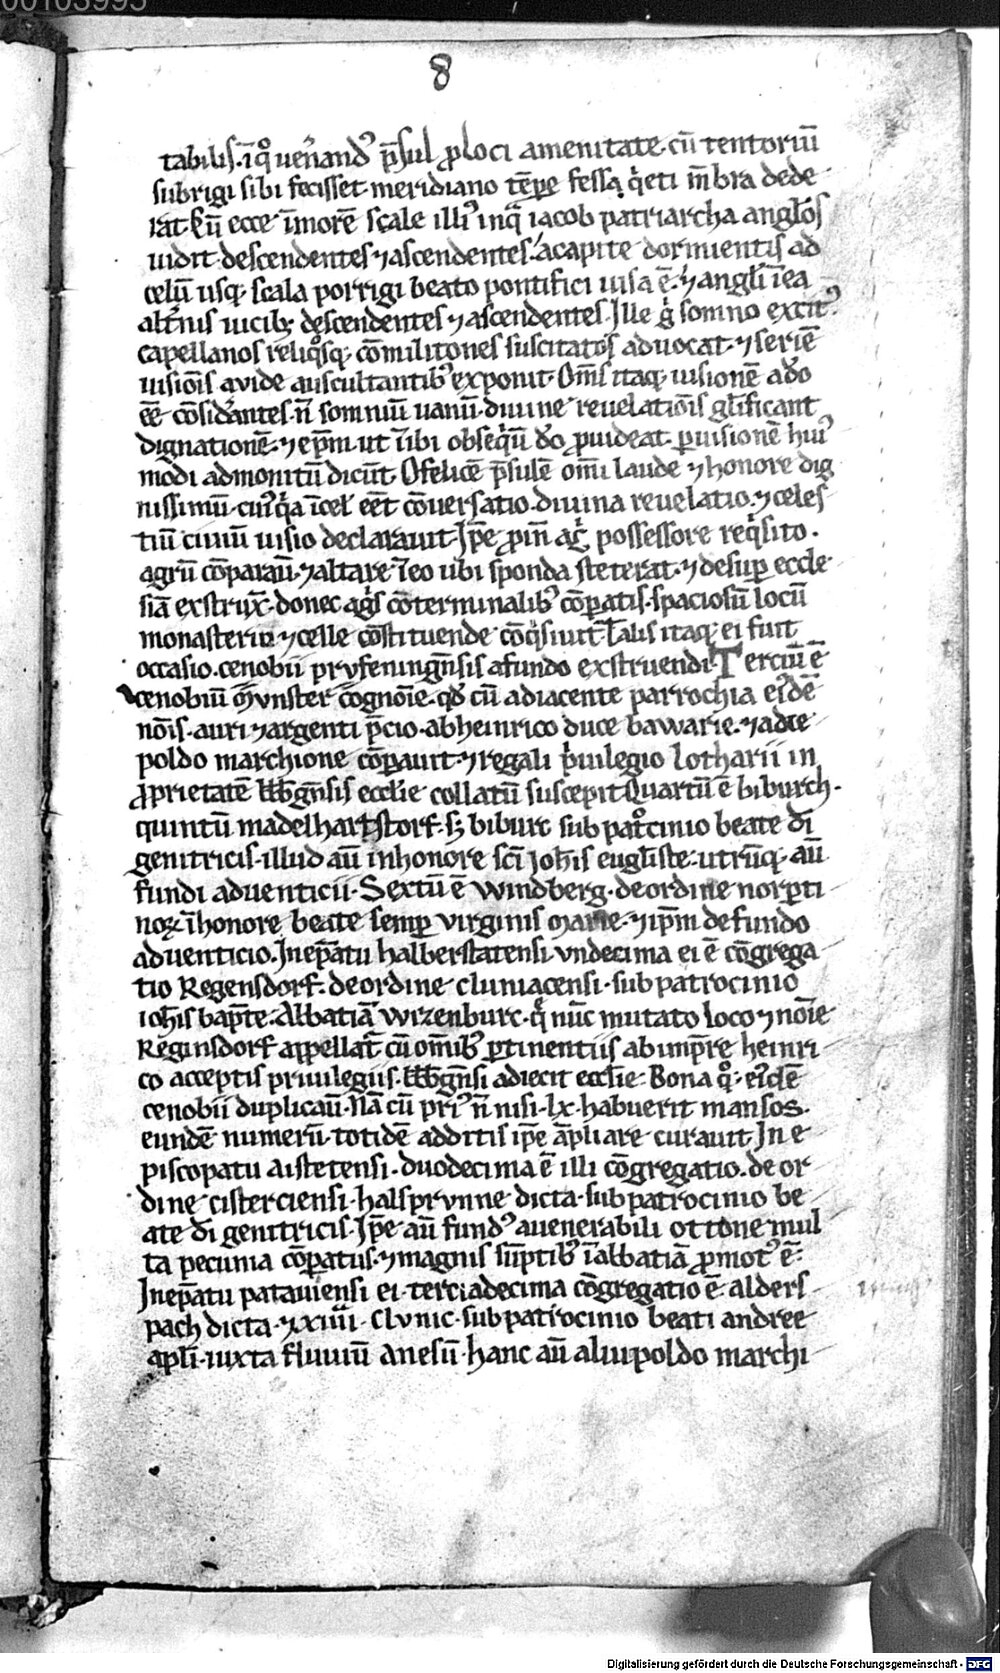 00103993
8
tabilis. ī q̊ uen̄and᷒ p̄sul ꝓ loci amenitate cū tentoriū
subrigi sibi fecisset meridiano tēpe fessa q̇eti m̄bra dede
rat. Et̄ ecce īmorē scale illi᷒ inq̄ iacob patriarcha angl̄os
uidit descendentes ⁊ ascendentes. a capite dormientis ad
celū usq; scala porrigi beato pontifici uisa ē. ⁊ angl̄i ī ea
alt̄nis uicib; descendentes ⁊ ascendentes. Ille g̊ somno excit᷒
capellanos reliq̊sq; cōmilitones suscitatos aduocat. ⁊ seriē
uisiōis auide auscultantib᷒ exponit. Om̄s itaq; uisionē a dō
eē cōsid̄antes. n̄ somniū uanū. diuine reuelatiōis gl̄ificant
dignationē. ⁊ ep̄m ut ībi obseq̇ū dō ꝓuideat. ꝑ uisionē hui᷒
modi admonitū dicūt. O felicē p̄sulē om̄i laude ⁊ honore dig
nissimū. cui᷒ q̇a ī cel̄ eēt cōuersatio. diuina reuelatio. ⁊ celes
tiū ciuiū uisio declarauit. Ip̄e ꝓin̄ ag̊ possessore req̇sito.
agrū cōparau̅. ⁊ altare ī eo ubi sponda steterat. ⁊ desuꝑ eccle
siā exstrux̄. donec ag̊s cōterminalib᷒ cōꝑatis. spaciosū locū
monasterio ⁊ celle cōstituende cōq̇siuit. Talis itaq; ei fuit
occasio. cenobii prvfeningn̄sis a fundo exstruendi. Terciū ē
cenobiū Mvnster cognōie. qđ cū adiacente parrochia ei᷒dē
nōis. auri ⁊ argenti p̄cio. ab heinrico duce bawarie. ⁊ a die
poldo marchione cōꝑauit. ⁊ regali ṗuilegio lotharii in
ꝓprietatē bb̄gn̄sis eccl̄ie collatū suscepit. Quartū ē biburch.
quintū madelhartstorf. s; biburc sub pat̊cinio beate d̄i
genitricis. illud au̅ in honore sc̄i Ioh̄is eugl̄iste. utrūq; au̅
fundi aduenticii. Sextū ē windberg. de ordine norꝑti
noꝝ ī honore beate semꝑ virginis marie. ⁊ ip̄m de fundo
aduenticio. In ep̄atu halberstatensi. vndecima ei ē cōgrega
tio Regensdorf. de ordine cluniacensi. sub patrocinio
ioh̄is bap̄te. Abbatiā wizenburc. q̄ nūc mutato loco ⁊ nōie
Reginsdorf appellat̄ cū om̄ib᷒ ꝑtinentiis ab imp̄re heinri
co acceptis priuilegiis. bb̄gn̄si adiecit eccl̄ie. Bona q̊; ei᷒dē
cenobii duplicau̅. Nā cū pri᷒ n̄ nisi. lx. habuerit mansos.
eundē numerū. totidē additis ip̄e āpliare curauit. In e
piscopatu aistetensi. duodecima ē illi cōgregatio. de or
dine cisterciensi. halsprvnne dicta. sub patrocinio be
ate d̄i genitricis. Ip̄e au̅ fund᷒ a uenerabili ottone mul
ta pecunia cōꝑatus. ⁊ magnis sūptib᷒ ī abbatiā ꝓmot᷒ ē.
In ep̄atu patauiensi ei. terciadecima cōgregatio ē. alders
pach dicta. ⁊ xiiii. Clvnic. sub patrocinio beati andree
apl̄i. iuxta fluuiū anesū. hanc au̅ a liupoldo marchi
Digitalisierung gefördert durch die Deutsche Forschungsgemeinschaft - DFG